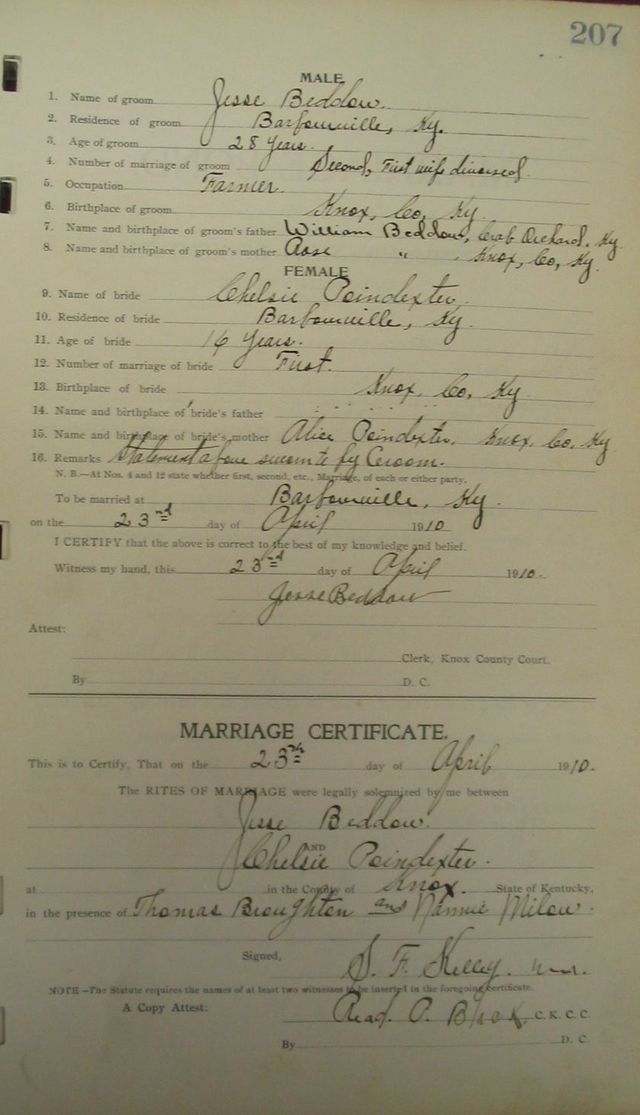 207
MALE
1. Name of groom Jesse Beddow.
2. Residence of groom Barbourville, Ky.
3. Age of groom 28 years.
4. Number of marriage of groom Second, First wife divorced.
5. Occupation Farmer.
6. Birthplace of groom Knox, Co, Ky.
7. Name and birthplace of groom's father William Beddow, Crab Orchard, Ky
8. Name and birthplace of groom's mother Rose " , Knox, Co, Ky.
FEMALE
9. Name of bride Chelsie Poindexter.
10. Residence of bride Barbourville, Ky.
11. Age of bride 16 Years.
12. Number of marriage of bride First.
13. Birthplace of bride Knox, Co, Ky
14. Name and birthplace of bride's father
15. Name and birthplace of bride's mother Alice Poindexter, Knox, Co, Ky
16. Remarks Statement above sworn to by Groom.
N. B.—At Nos. 4 and 12 state whether first, second, etc., Marriage, of each or either party.
To be married at Barbourville, Ky.
on the 23rd day of April 1910
I CERTIFY that the above is correct to the best of my knowledge and belief.
Witness my hand, this 23rd day of April 1910.
Jesse Beddow
Attest:
Clerk, Knox County Court.
By D. C.
MARRIAGE CERTIFICATE.
This is to Certify, That on the 23rd day of April 1910.
The RITES OF MARRIAGE were legally solemnized by me between
Jesse Beddow.
AND
Chelsie Poindexter.
at in the County of Knox. State of Kentucky,
in the presence of Thomas Broughton and Nannie
Signed,
S. F. Kelley.
NOTE—The Statute requires the names of at least two witnesses to be inserted in the foregoing certificate.
A Copy Attest: Read P. Black, C. K. C. C.
By D. C.